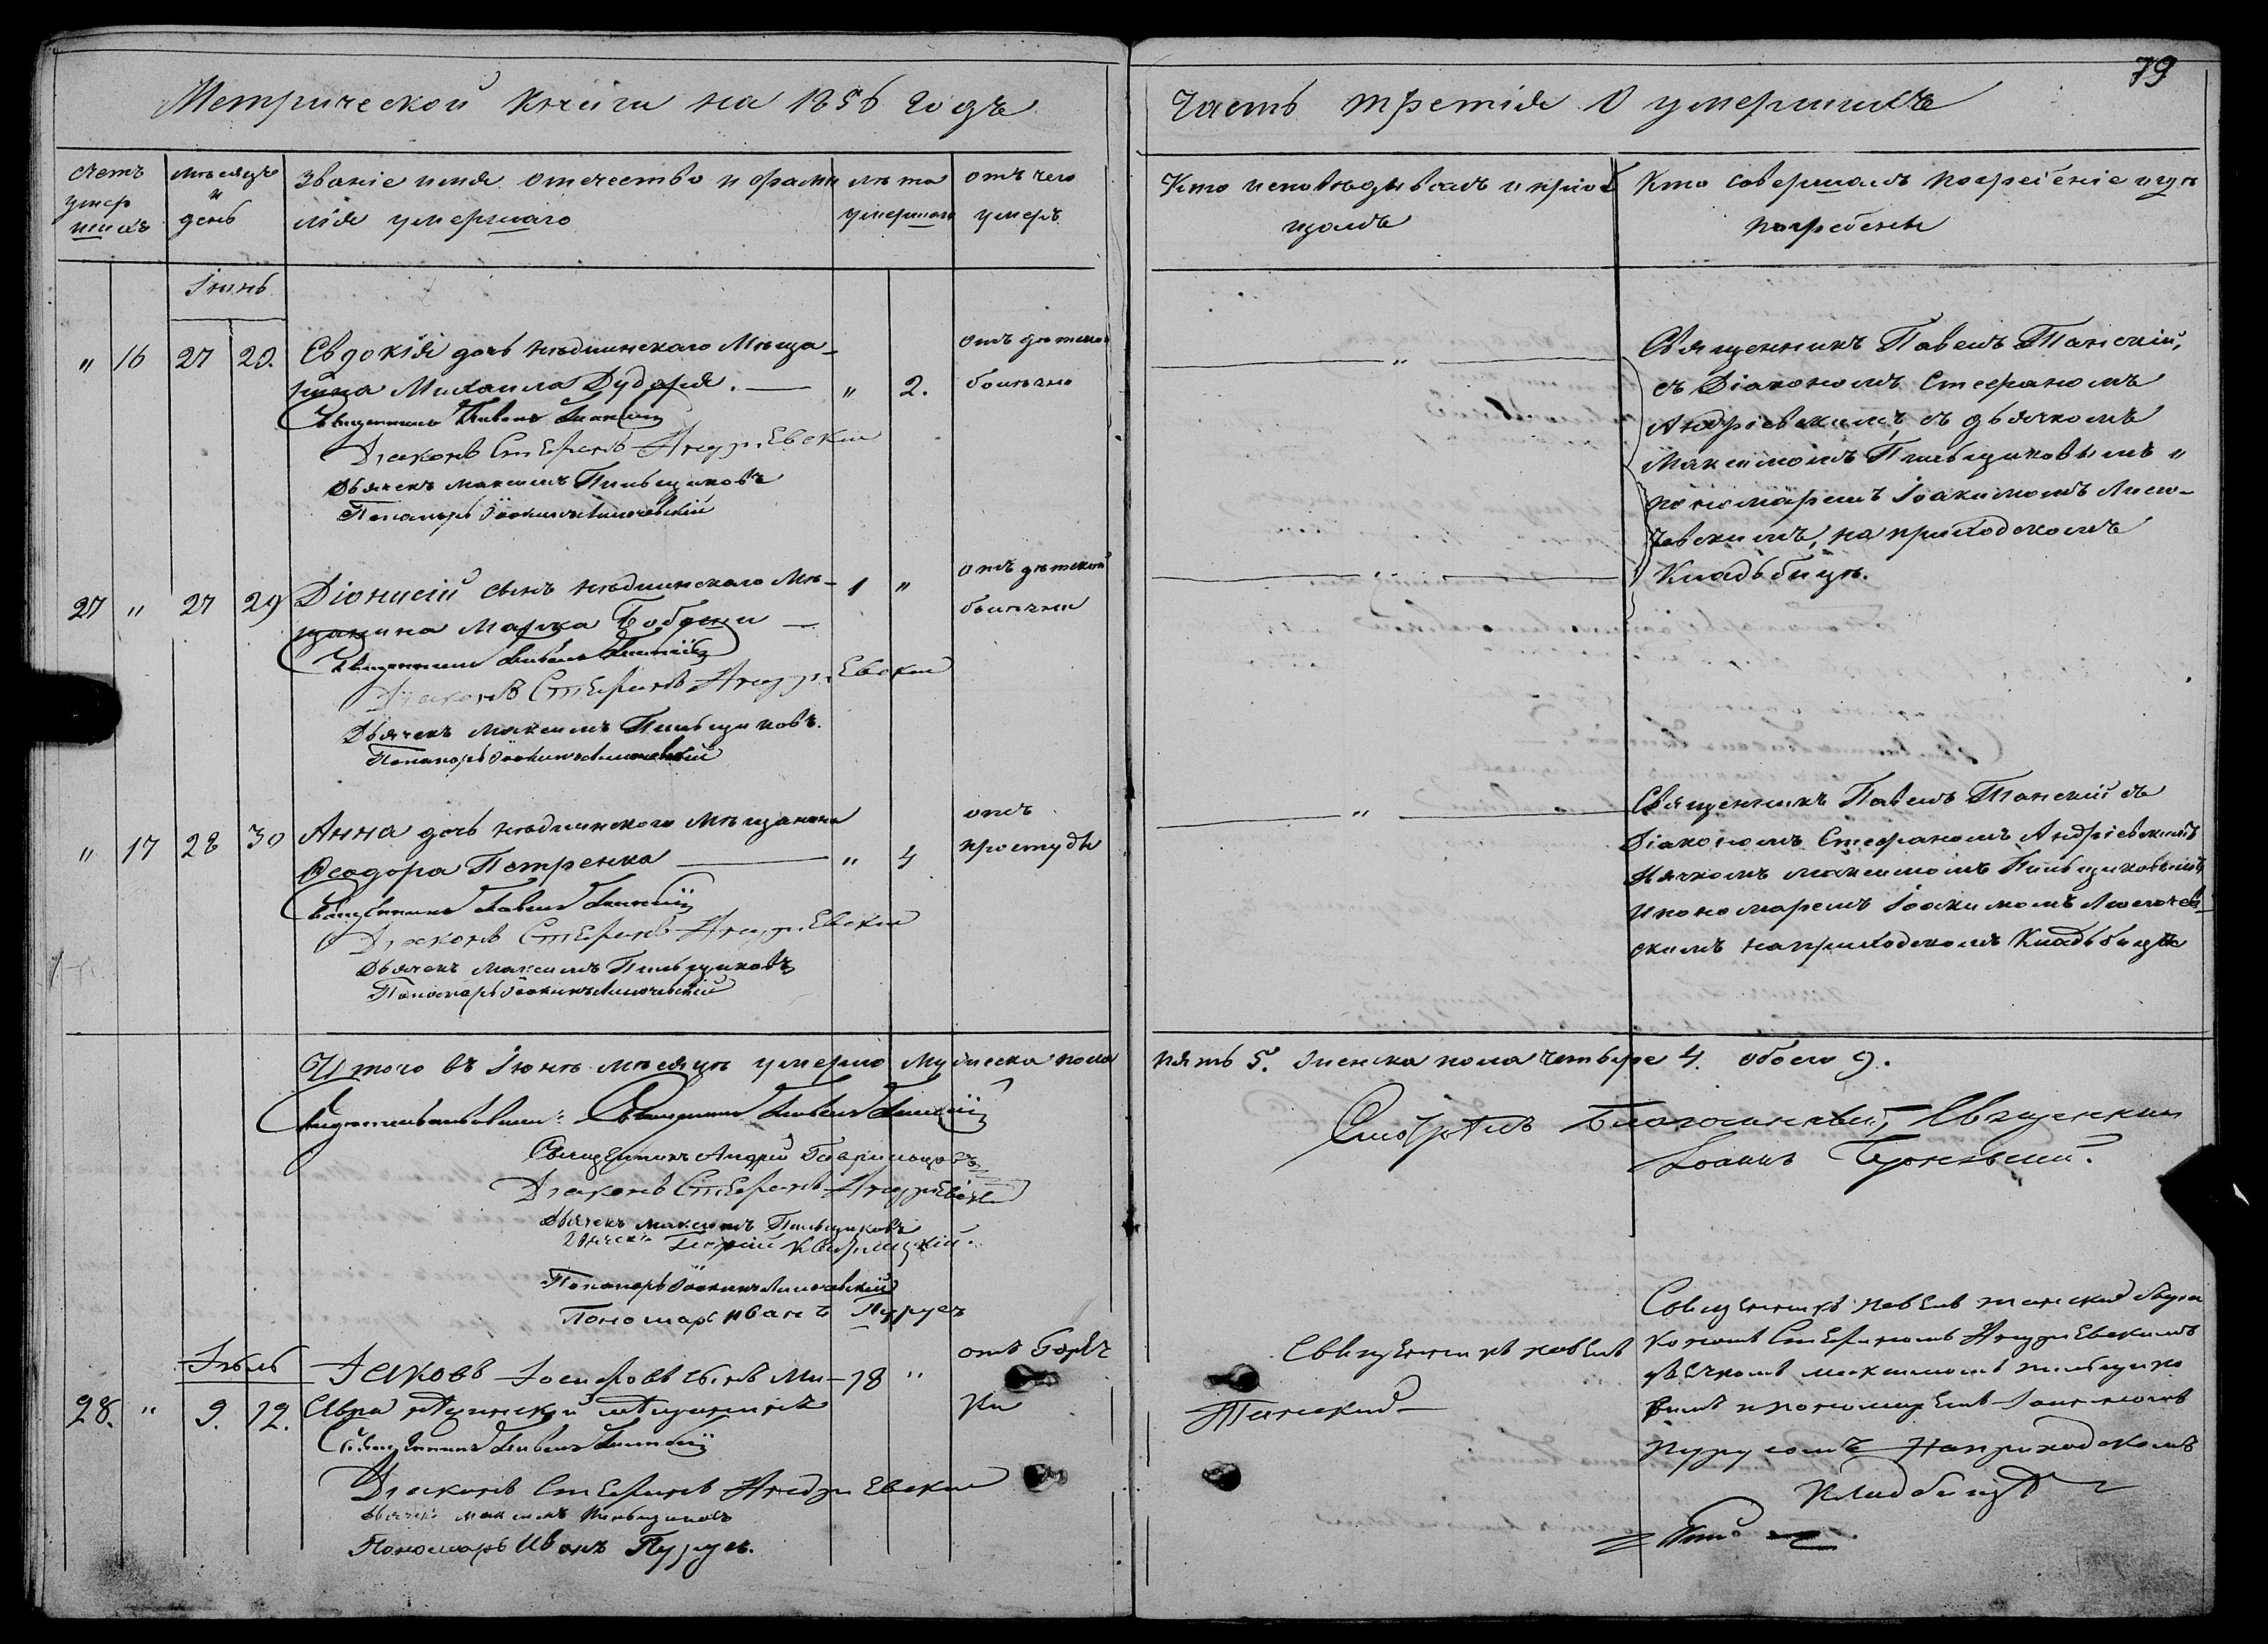 79
Метрической книги на 1856 годъ
Часть третія О умершихъ
Счетъ умер шихъ
мѣсяцъ и день
Званіе имя отечество и фами
лія умершаго
лѣта умершаго
отъ чего умеръ
Кто исповѣдывалъ и пріоб
щалъ
Кто совершалъ погребеніе и гдѣ
погребены
Іюнь
" 16 27 29. Евдокія дочь нѣжинскаго Мѣща-
нина Михаила Дударя. — " 2.
отъ дѣтской
болѣзни
Священникъ Павелъ Танскій
Диаконъ Стефанъ Андриевскии
Дьячекъ Максимъ Пильщиковъ
Пономарь Іоакимъ Лисочевскій
"
Священникъ Павелъ Танскій,
съ Діакономъ Стефаномъ
Андріевскимъ, съ дьячкомъ
Максимомъ Пильщиковымъ и
пономаремъ Іоакимомъ Лисо-
чевскимъ, на приходскомъ
Кладьбищѣ.
27 " 27 29 Діонисій сынъ нѣжинскаго Мѣ- 1 "
щанина Марка —
отъ дѣтской
болѣзни
Священникъ Павелъ Танскій
Диаконъ Стефанъ Андриевскии
Дьячекъ Максимъ Пильщиковъ.
Пономарь Іоакимъ Лисочевскій
"
" 17 28 30 Анна дочь нѣжинскаго мѣщанина
Ѳеодора Петренка — " 4
отъ
простуды
Священникъ Павелъ Танскій
Диаконъ Стефанъ Андриевскии
Дьячекъ Максимъ Пильщиковъ
Пономарь Іоакимъ Лисочевскій
"
Священникъ Павелъ Танскій съ
Діакономъ Стефаномъ Андріевскимъ
дячкомъ Максимомъ Пильщиковымъ
и пономаремъ Іоакимомъ Лисочев-
скимъ на приходскомъ Кладьбищѣ
Итого въ Іюнѣ мѣсяцѣ умерло мужеска пола пять 5. женска пола четыре 4. обоего 9.
Священникъ Павелъ Танскій
Священникъ Андрей
Диаконъ Стефанъ Андриевскии
Дьячекъ Максимъ Пильщиковъ
Пономарь Іоакимъ Лисочевскій
Пономарь Иванъ Пуруев
Смотрѣлъ Благочинный, Священникъ
Іоаннъ
Іюль
28. " 9. 12. Іаковъ Іосифовъ сынъ Ми- 18 "
Священникъ Павелъ Танскій
Диаконъ Стефанъ Андриевскии
Дьячекъ Максимъ Пильщиковъ
Пономарь Иванъ
отъ Горяч
ки
Священникъ Павелъ
Танский
Священникъ Павелъ Танский съ диа
кономъ Стефаномъ Андриевскимъ
дьячкомъ Максимомъ Пильщико
вимъ и пономаремъ Іоанномъ
на приходскомъ
Кладбищѣ